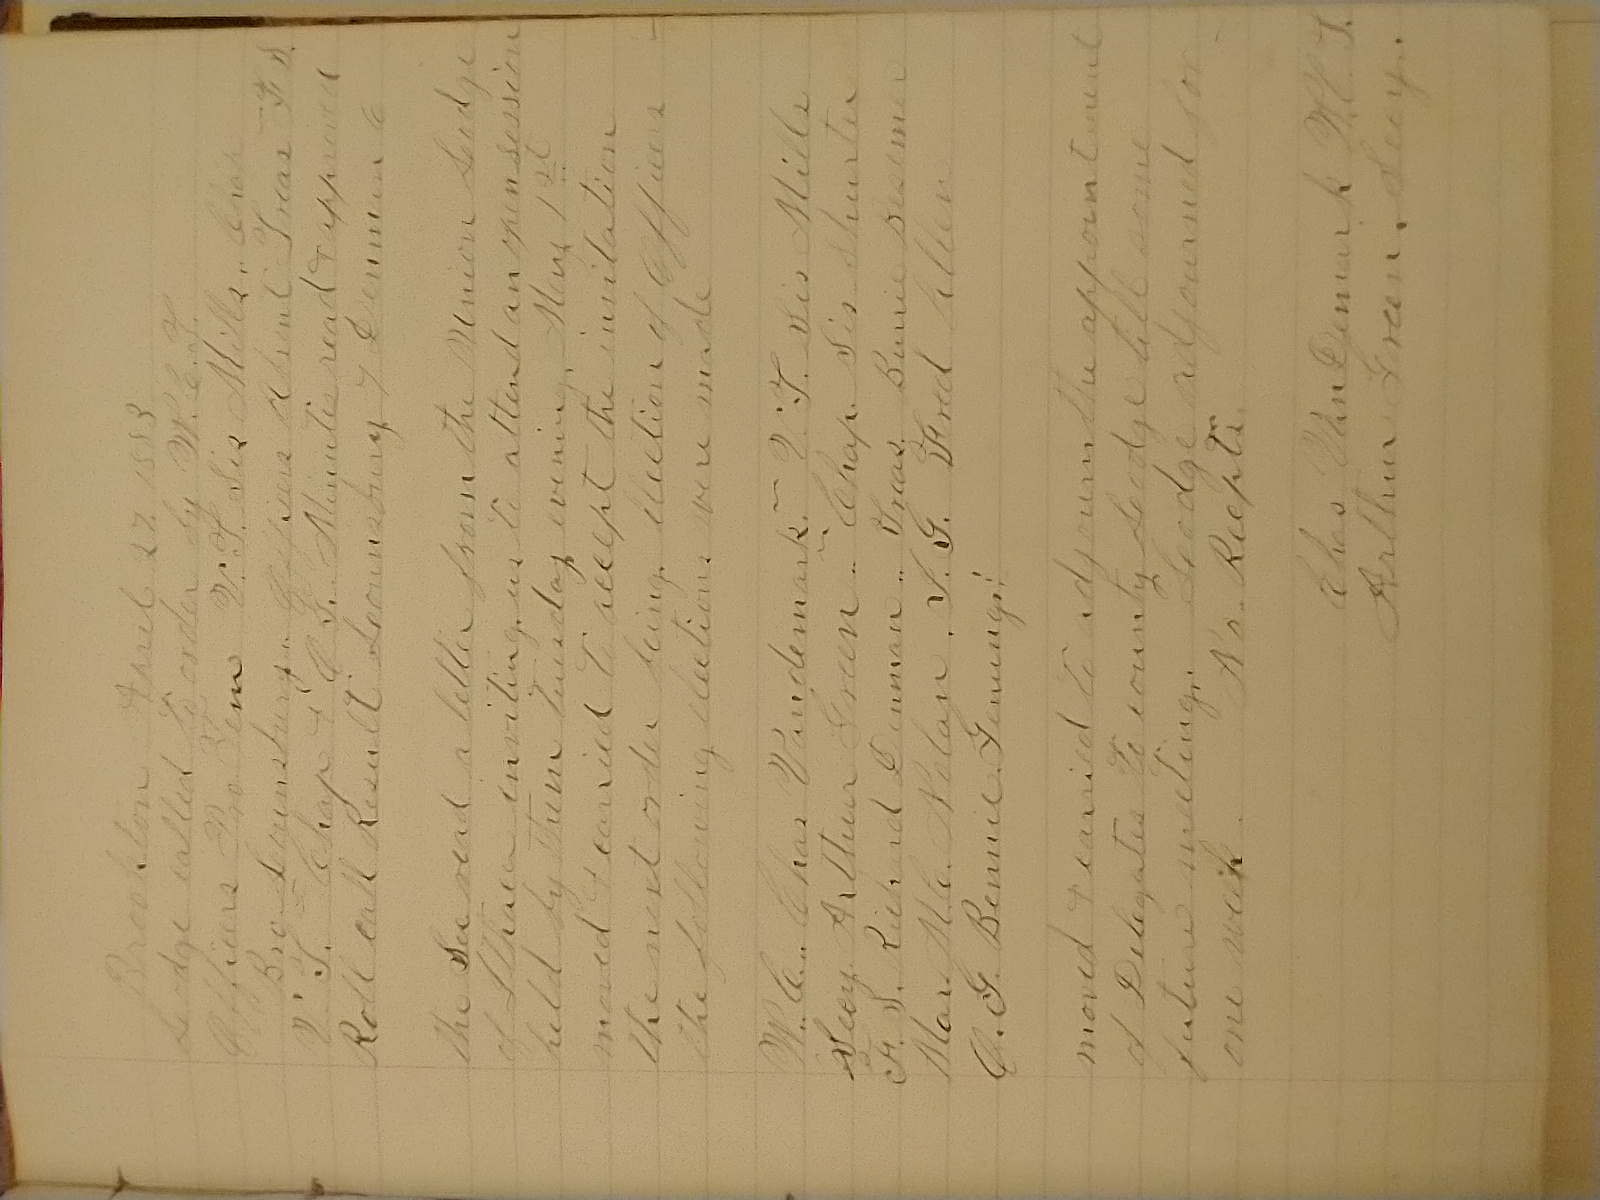 Brookton April 27. 1883
Lodge called to order by W.C.T.
Officers Pro Tem V.T. Sis Mills,. Chap
Bro. Lounsbury.. Officers Absent Treas F. S.
V. T. Chap & O G.. Minutes read & approved
Roll call Result Lounsbury 7 Denman 6
the Sec read a letter from the Union Lodge
of Ithaca inviting us to attend an open session
held by them Tuesday evening, May 1st
moved & carried to accept the invitation
the next order being election of Officers
the following elections were made
W.. C... Chas Vandemark. V. T. Sis Mills
Secy. Arthur Green .. Chap. Sis Shurter
F. S. Richard Denman .. Treas. Burrie Besemer
Mar. M.C. Nolan. I. G. Fred Allen
O. G. Bennie Genungs!
moved & carried to adjourn the appointment
of Delegates to county Lodge till some
future meeting. Lodge adjourned for
one week. No. Recpts.
Chas VanDemark W.C. T.
Arthur Green. Secy.